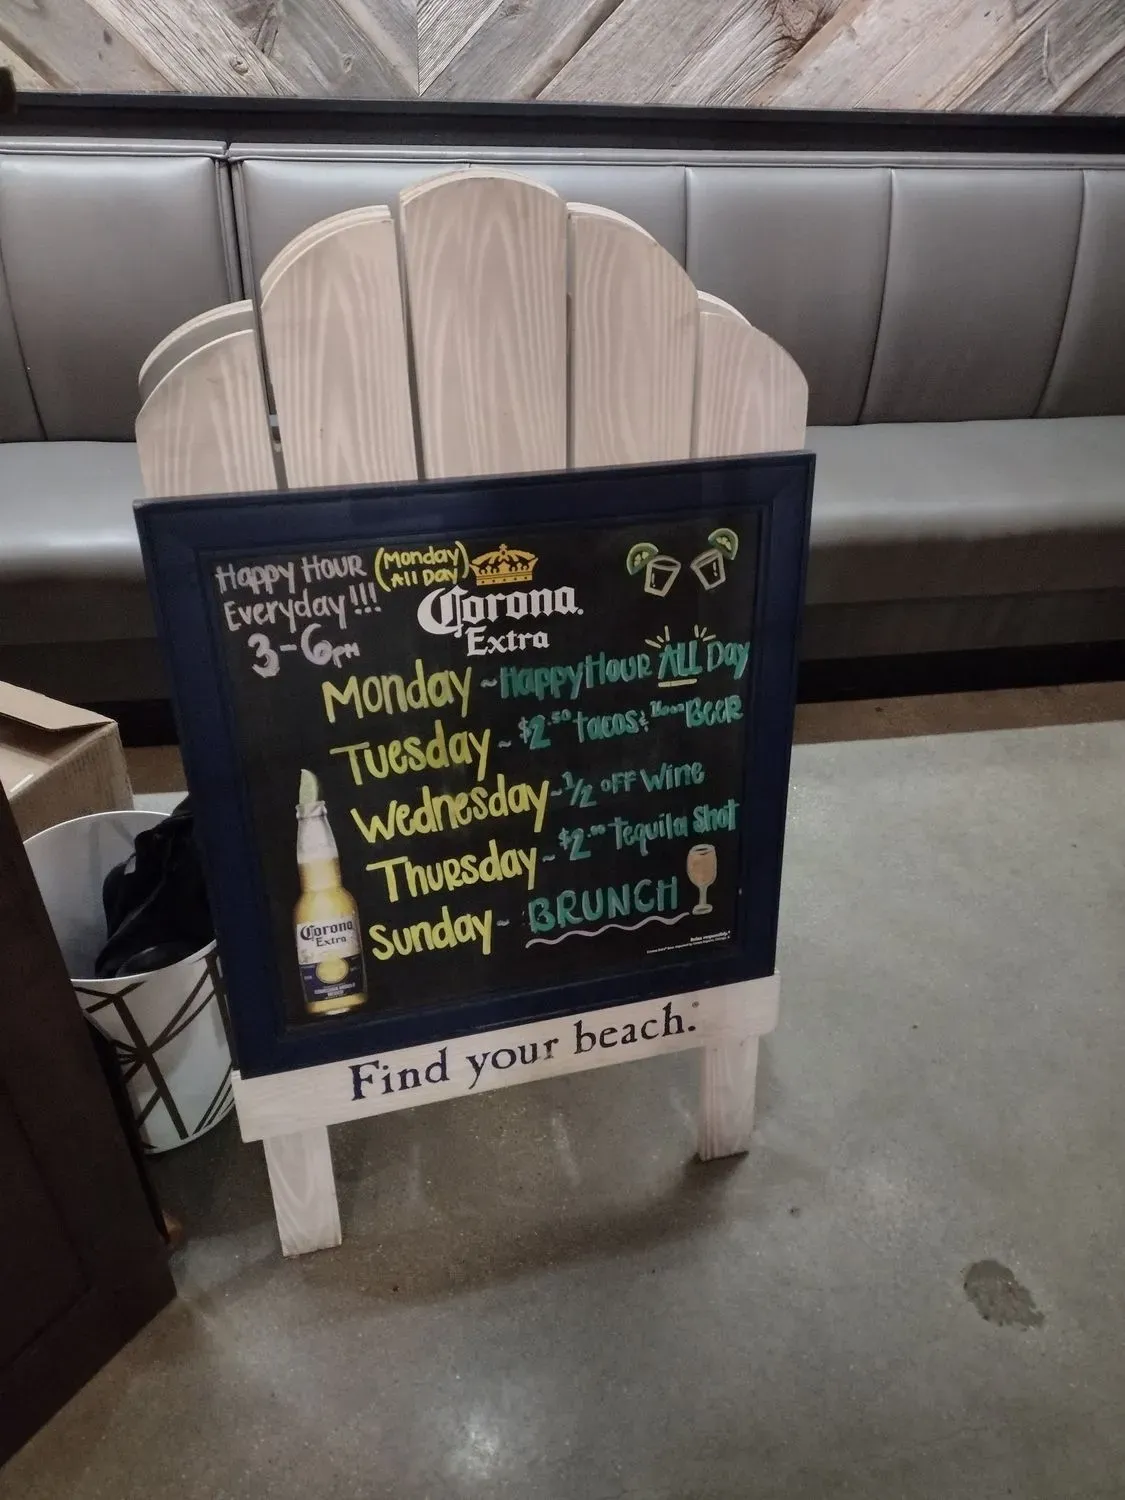 Happy Hour (Monday
Everyday!!! All Day)
3-6pm
Corona.
Extra
Monday ~ Happy Hour ALL Day
Tuesday ~ $2.50 tacos & 16oz Beer
Wednesday ~ 1/2 off Wine
Thursday ~ $2.00 Tequila Shot
Sunday ~ BRUNCH
Corona
Extra
Relax responsibly.®
Find your beach.®